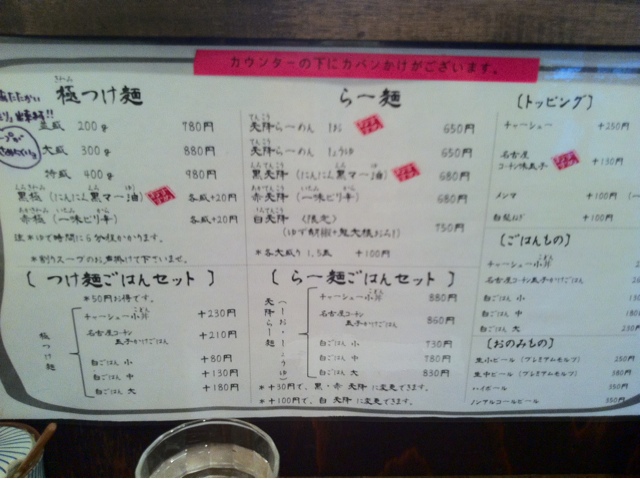 カウンターの下にカバンかけがございます。
極つけ麺
並盛 200g 780円
大盛 300g 880円
特盛 400g 980円
黒極 (にんにん黒マー油) 各盛+20円
赤極 (一味ピリ辛) 各盛+20円
注*ゆで時間に
*割りスープのお声掛け下さいませ。
[つけ麺ごはんセット]
*50円お得です。
極つけ麺
チャーシュー小丼 +230円
名古屋コーチン玉子かけごはん +210円
白ごはん 小 +80円
白ごはん 中 +130円
白ごはん 大 +180円
らー麺
天降らーめん しお 650円
天降らーめん しょうゆ 650円
黒天降 (にんにん黒マー油) 680円
赤天降 (一味ピリ辛) 680円
白天降 〈限定〉
(ゆず胡椒+鬼大根おろし) 750円
*各大盛り 1.5玉 +100円
[らー麺ごはんセット]
天降らー麺 (しお・しょうゆ)
チャーシュー小丼 880円
名古屋コーチン玉子かけごはん 860円
白ごはん 小 730円
白ごはん 中 780円
白ごはん 大 830円
*+30円で、黒・赤 天降 に変更できます。
*+100円で、白 天降 に変更できます。
[トッピング]
チャーシュー +250円
名古屋コーチン味玉子 +130円
メンマ +100円
白髪ねぎ +100円
[ごはんもの]
チャーシュー小丼
名古屋コーチン玉子かけごはん
白ごはん 小
白ごはん 中
白ごはん 大 230円
[おのみもの]
生小ビール (プレミアムモルツ) 250円
生中ビール (プレミアムモルツ) 380円
ハイボール 350円
ノンアルコールビール 350円